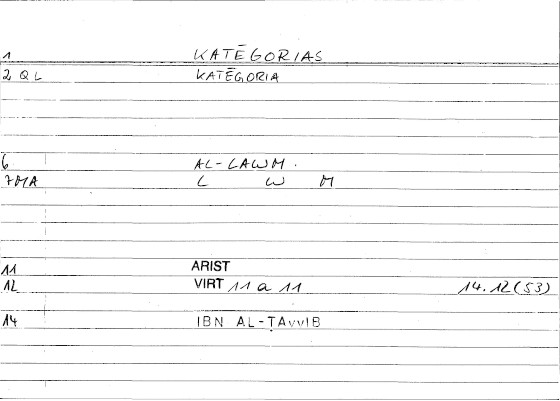 1 KATĒGORIAS
2 QL KATĒGORIA
6 AL-LAWM.
7MA L W M
11 ARIST
12 VIRT 11 a 11 14.12(53)
14 IBN AL-ṬAYYIB